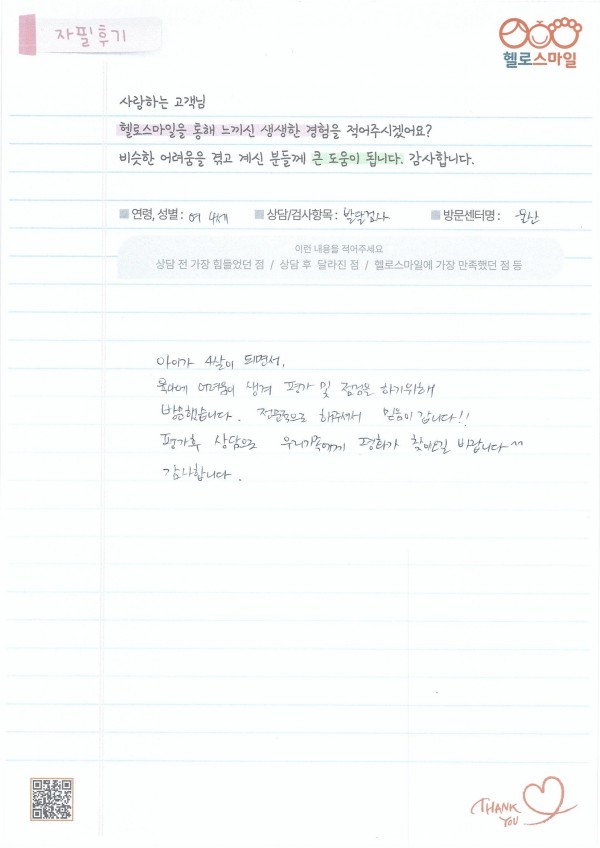 자필후기
헬로스마일
사랑하는 고객님
헬로스마일을 통해 느끼신 생생한 경험을 적어주시겠어요?
비슷한 어려움을 겪고 계신 분들께 큰 도움이 됩니다. 감사합니다.
연령, 성별 : 여 4세 상담/검사항목 : 발달검사 방문센터명 : 운산
이런 내용을 적어주세요
상담 전 가장 힘들었던 점 / 상담 후 달라진 점 / 헬로스마일에 가장 만족했던 점 등
아이가 4살이 되면서,
육아에 어려움이 생겨 평가 및 점검을 하기위해
방문했습니다. 전문적으로 해주셔서 믿음이 갑니다!!
평가후 상담으로 우리가족에게 평화가 찾아오길 바랍니다^^
감사합니다.
THANK YOU